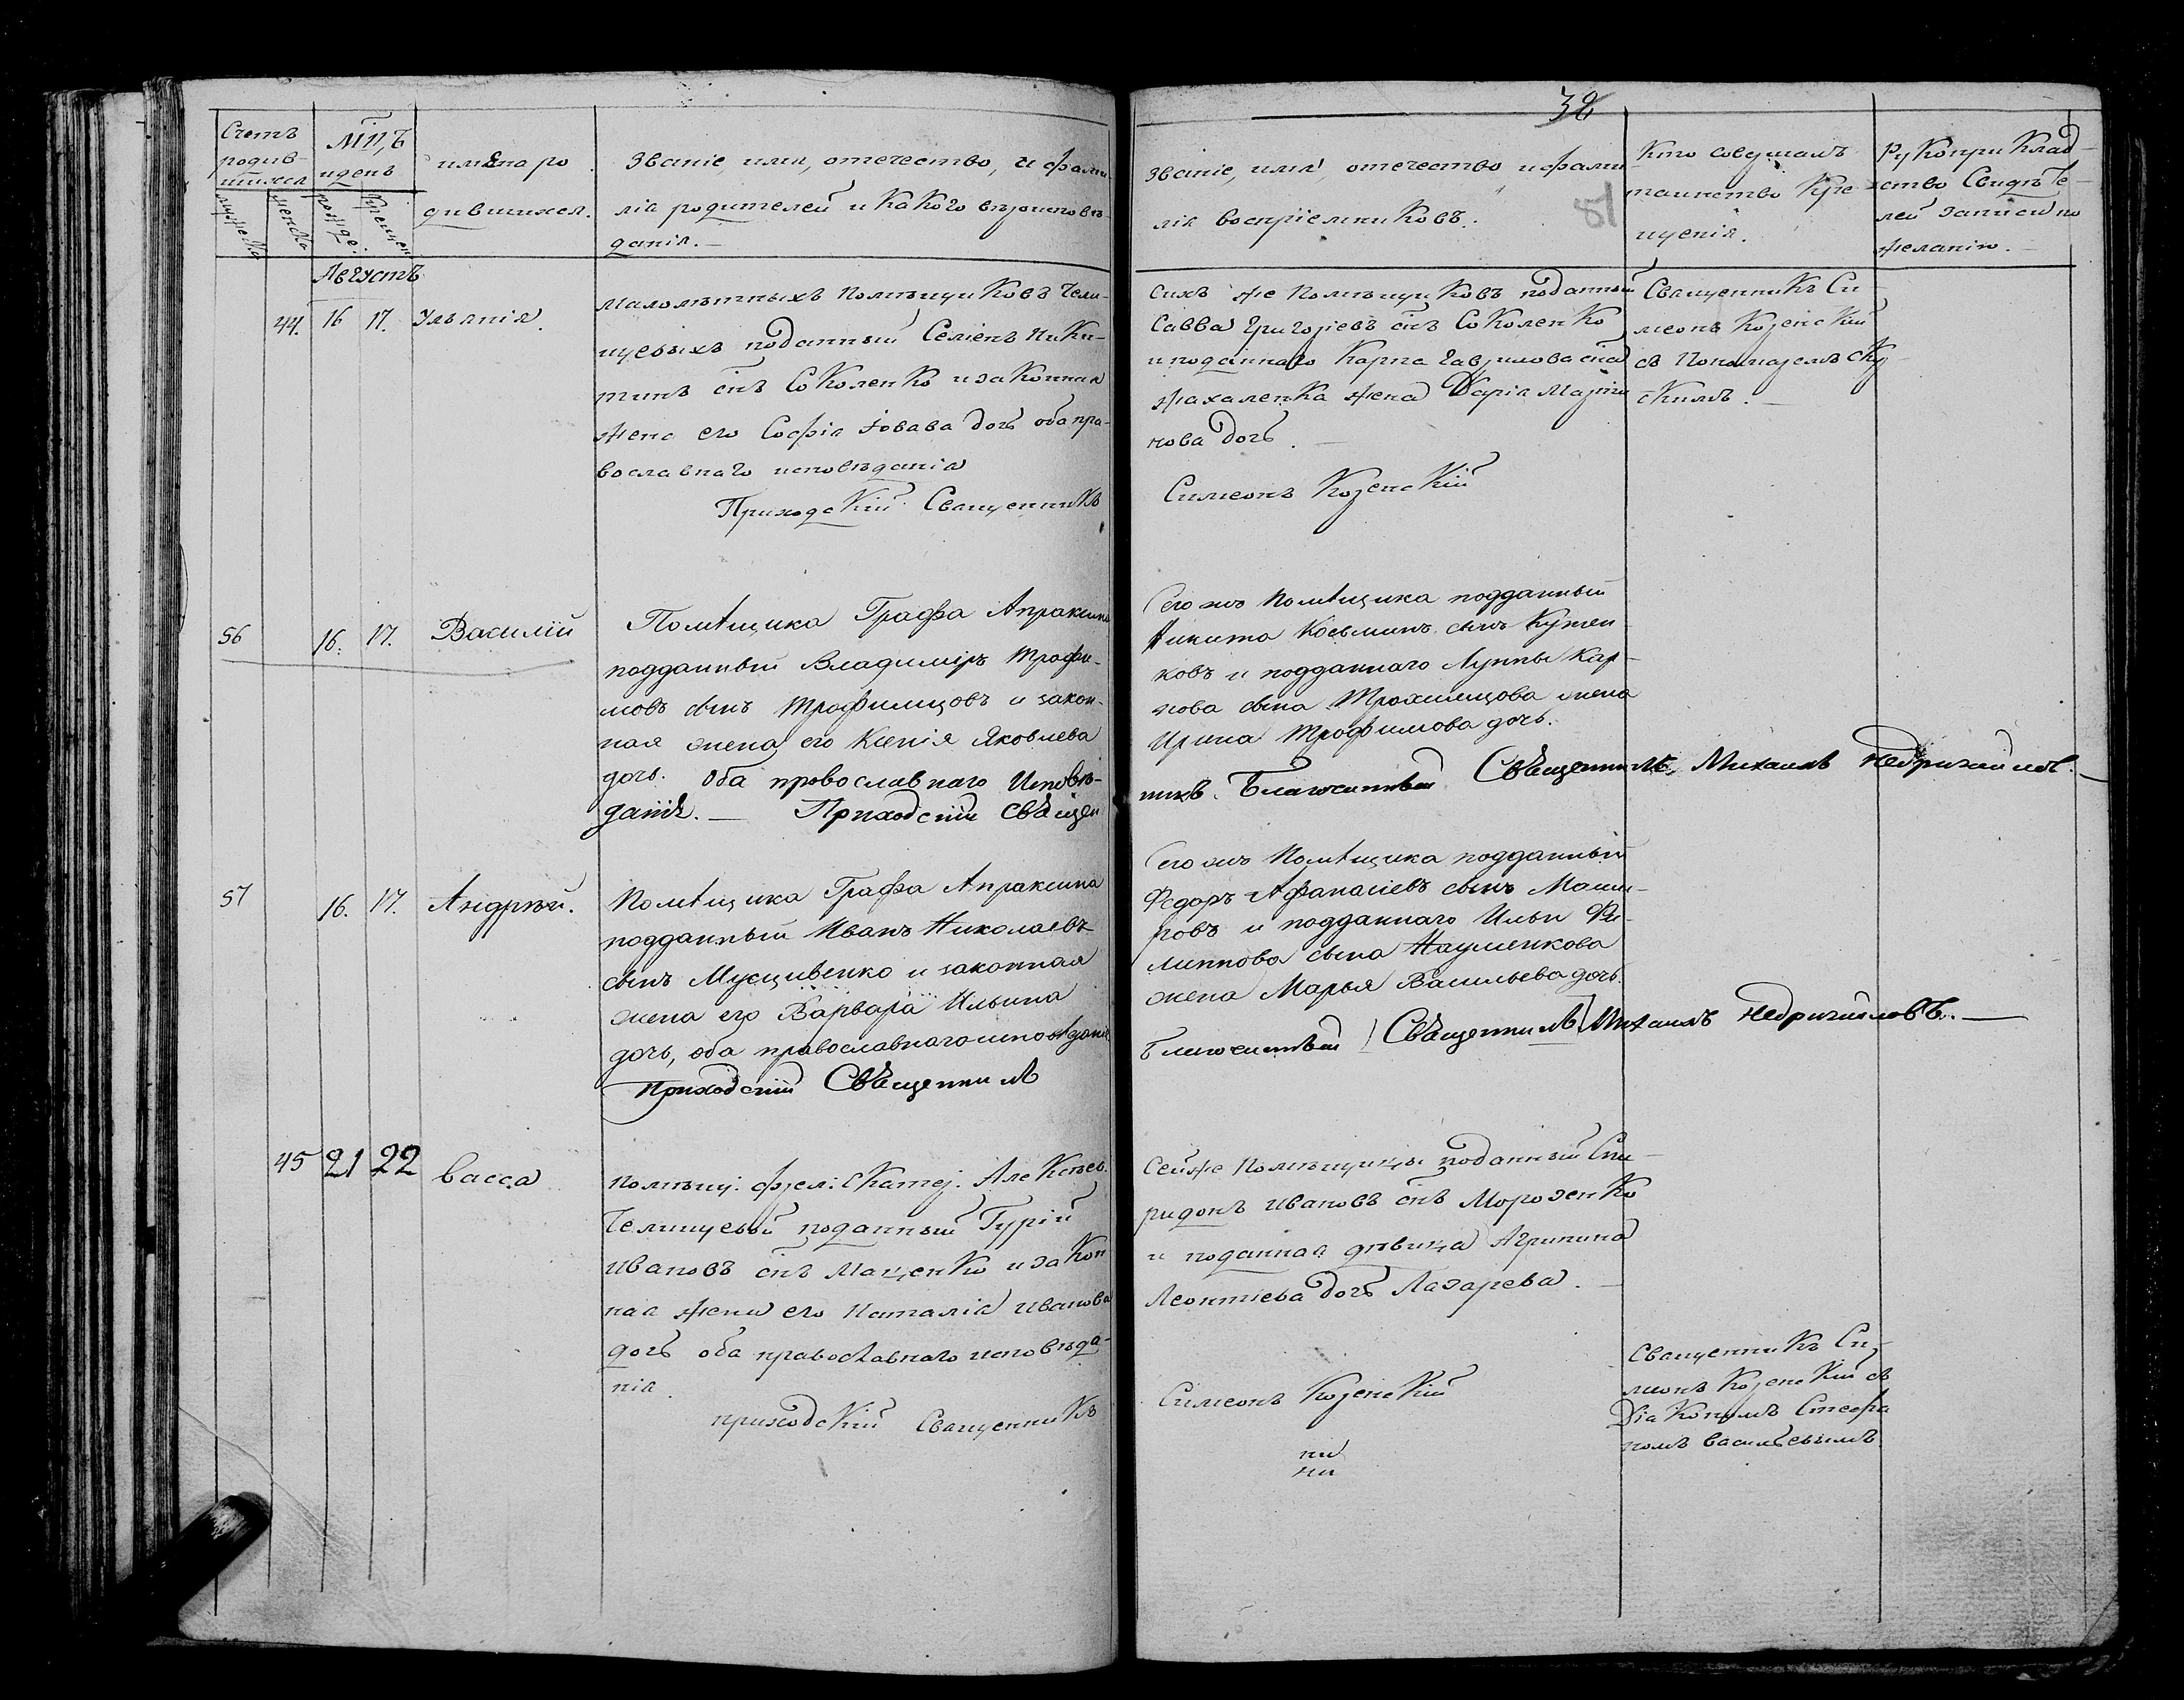 38
81
Счетъ родив-шихся
мужеска
женска
Мц,ъ и день
рожде:
крещен
имена ро
дившихся.
Званіе, имя, отечество, и фами
лія родителей и какого вѣроисповѣ
данія.
Званіе, имя, отечество и фами
лія воспріемниковъ.
Кто совершалъ
таинство кре
щенія.
Рукоприклад-
ство свидѣте-
лей записи по
желанію.
Августъ
44. 16 17. Ульянія.
малолѣтныхъ помѣщиковъ Чели-
щевыхъ поданный Семіенъ Ники-
тинъ снъ Соколенко и законная
жена его Софія Іовава дочь оба пра-
вославнаго исповѣданія
Приходскій Священникъ
Сихъ же помѣщиковъ поданный
Савва Григоріевъ снъ Соколенко
и поданнаго Карпа Гаврилова сна
Жахаленка жена Дарія Марти
нова дочь.
Симеонъ Козенскій
Священникъ Си-
меонъ Козенскій
съ Пономаремъ
56 16. 17. Василій
Помѣщика Графа Апраксина
подданный Владиміръ Трофи-
мовъ сынъ Трофимцовъ и закон-
ная жена его Ксенія Яковлева
дочь. Оба провославнаго Исповѣ-
данія. — Приходскій Священ
Сего жъ Помѣщика подданный
Никита Косьминъ сынъ Кужен-
ковъ и подданнаго Луппы Кар-
нова сына Трохимцова жена
Ирина Трофимова дочь.
никъ. Благочинный Священникъ, Михаилъ Недригайловъ. —
57 16. 17. Андрѣй.
Помѣщика Графа Апраксина
подданный Иванъ Николаевъ
сынъ Мусцивенко и законная
жена его Варвара Ильина
дочь, оба православнаго исповѣданія
Приходскій Священникъ
Сего жъ Помѣщика подданный
Федоръ Афанасіевъ сынъ Маши-
ровъ и подданнаго Ильи Фи-
липпова сына Науменкова
жена Марья Васильева дочь.
Благочинный Священникъ Михаилъ Недригайловъ. —
45 21 22 Васса
помѣщ: Екатер: Алексѣев.
Челищевый поданный Гурій
Ивановъ снъ Маценко и закон
ная жена его Наталія Иванова
дочь оба православнаго исповѣда-
нія.
приходскій Священникъ
Сей же помѣщицы поданный Спи-
ридонъ Ивановъ снъ Морозенко
и поданная дѣвица Агрипина
Леонтіева дочь Лазарева. —
Симеонъ Козенскій
Священникъ Си-
меонъ Козенскій съ
Діакономъ Стефа
номъ Васильевымъ